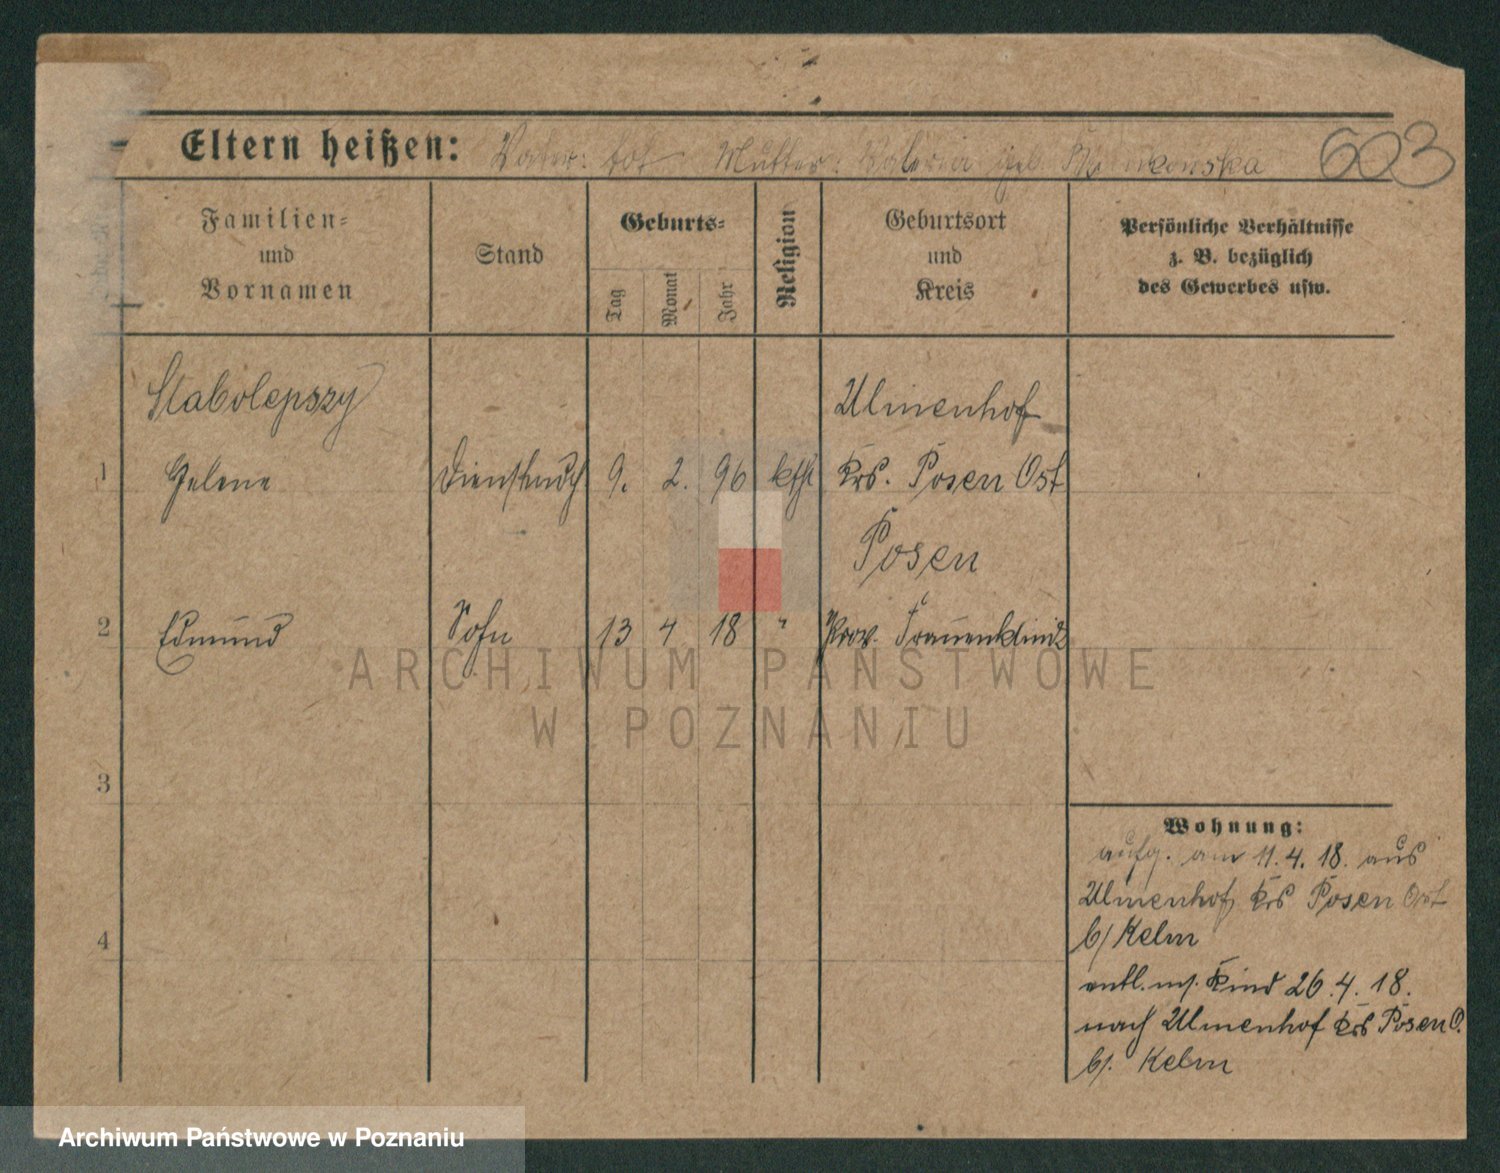 Eltern heißen: Vater: tot Mutter: Valeria geb. 603
Familien=
und
Vornamen
Stand
Geburts=
Tag
Monat
Jahr
Religion
Geburtsort
und
Kreis
Persönliche Verhältnisse
z. B. bezüglich
des Gewerbes usw.
Slabolepszy
Ulmenhof
1 Helene Dienstmdch 9. 2. 96 kthl Krs. Posen Ost
Posen
2 Edmund Sohn 13 4 18 " Prov. Frauenklinik
3
4
Wohnung:
aufg. am 11.4.18. aus
Ulmenhof Krs Posen Ost
b/ Kelm
entl. m. Kind 26.4.18.
nach Ulmenhof Krs Posen O.
b/. Kelm
ARCHIWUM PAŃSTWOWE
W POZNANIU
Archiwum Państwowe w Poznaniu